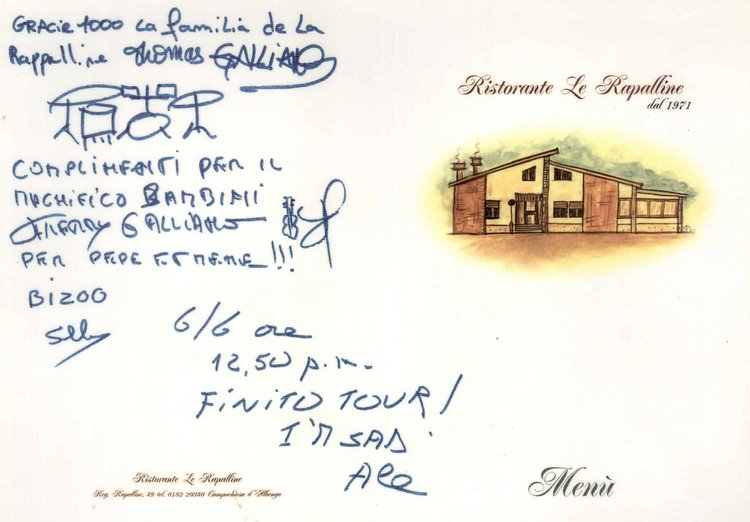 GRACIE 1000 LA familia de La
Rappalline Thomas GALLIANO
COMPLIMENTI PER IL
MAGNIFICO BAMBINI
THIERRY GALLIANO
PER PEPE ET MEME!!!
BIZOO
6/6 ore
12,50 p.m.
FINITO TOUR!
I'M SAD
Ale
Ristorante Le Rapalline
Reg. Rapalline, 49 tel. 0182 20340 Campochiesa d'Albenga
Ristorante Le Rapalline
dal 1971
Menù